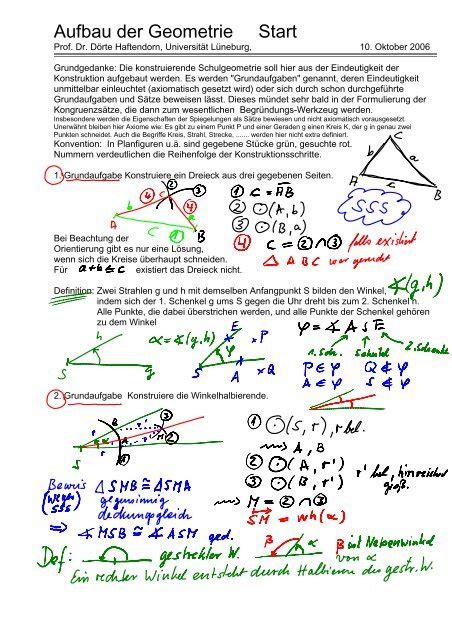 Aufbau der Geometrie Start
Prof. Dr. Dörte Haftendorn, Universität Lüneburg, 10. Oktober 2006
Grundgedanke: Die konstruierende Schulgeometrie soll hier aus der Eindeutigkeit der
Konstruktion aufgebaut werden. Es werden "Grundaufgaben" genannt, deren Eindeutigkeit
unmittelbar einleuchtet (axiomatisch gesetzt wird) oder sich durch schon durchgeführte
Grundaufgaben und Sätze beweisen lässt. Dieses mündet sehr bald in der Formulierung der
Kongruenzsätze, die dann zum wesentlichen Begründungs-Werkzeug werden.
Insbesondere werden die Eigenschaften der Spiegelungen als Sätze bewiesen und nicht axiomatisch vorausgesetzt.
Unerwähnt bleiben hier Axiome wie: Es gibt zu einem Punkt P und einer Geraden g einen Kreis K, der g in genau zwei
Punkten schneidet. Auch die Begriffe Kreis, Strahl, Strecke, ....... werden hier nicht extra definiert.
Konvention: In Planfiguren u.ä. sind gegebene Stücke grün, gesuchte rot.
Nummern verdeutlichen die Reihenfolge der Konstruktionsschritte.
b a
A c B
C
SSS
1. Grundaufgabe Konstruiere ein Dreieck aus drei gegebenen Seiten.
① c = AB
② ⊙(A, b)
③ ⊙(B, a)
④ C = ② ∩ ③ falls existiert
△ ABC war gesucht
Bei Beachtung der
Orientierung gibt es nur eine Lösung,
wenn sich die Kreise überhaupt schneiden.
Für a+b ≤ c existiert das Dreieck nicht.
Definition: Zwei Strahlen g und h mit demselben Anfangspunkt S bilden den Winkel, ∢(g,h)
indem sich der 1. Schenkel g ums S gegen die Uhr dreht bis zum 2. Schenkel h.
Alle Punkte, die dabei überstrichen werden, und alle Punkte der Schenkel gehören
zu dem Winkel
α = ∢(g,h)
φ = ∢ A S E
1. Sch. Scheitel 2. Schenkel
P ∈ φ Q ∉ φ
A ∈ φ S ∈ φ
2. Grundaufgabe Konstruiere die Winkelhalbierende.
① ⊙(S, r), r bel.
⇝ A, B
② ⊙(A, r')
③ ⊙(B, r') r' bel, hinreichend groß.
⇝ M = ② ∩ ③
SM = wh(α)
Beweis △ SMB ≅ △ SMA
(wegen SSS) gegensinnig
deckungsgleich
⇒ ∢ MSB ≅ ∢ ASM ged.
Def: gestreckter W. β ist Nebenwinkel von α
Ein rechter Winkel entsteht durch Halbieren des gestr. W.